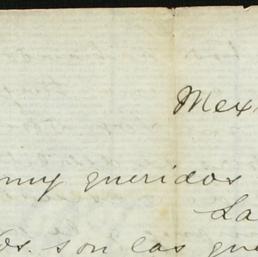 Mex
muy queridos
La
os. son las que